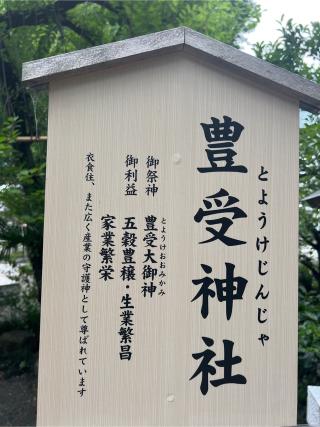 とようけじんじゃ
豊受神社
とようけおおみかみ
御祭神 豊受大御神
御利益 五穀豊穣・生業繁昌
家業繁栄
衣食住、また広く産業の守護神として尊ばれています